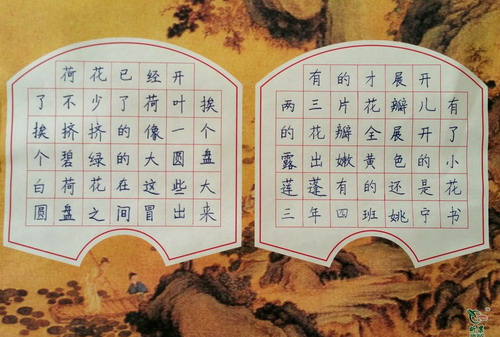 荷花已经开
了不少了荷叶挨
挨挤挤的像一个
个碧绿的大圆盘
白荷花在这些大
圆盘之间冒出来
有的才展开
两三片花瓣儿有
的花瓣全展开了
露出嫩黄色的小
莲蓬有的还是花
三年四班姚宁书